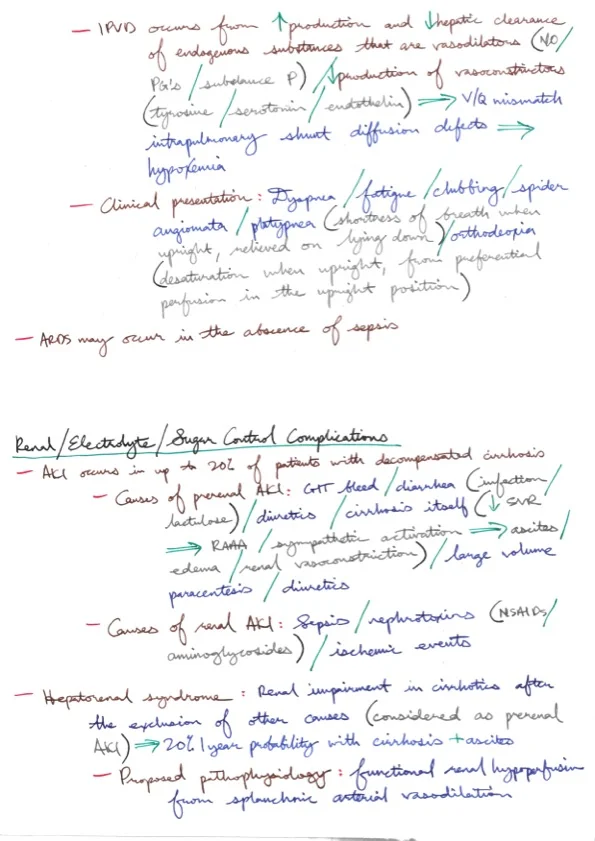 — IPVD occurs from ↑production and ↓hepatic clearance
of endogenous substances that are vasodilators (NO/
PG's/substance P)/↓production of vasoconstrictors
(tyrosine/serotonin/endothelin) ⟹ V/Q mismatch
intrapulmonary shunt diffusion defects ⟹
hypoxemia
— Clinical presentation: Dyspnea/fatigue/clubbing/spider
angiomata/platypnea (shortness of breath when
upright, relieved on lying down)/orthodeoxia
(desaturation when upright, from preferential
perfusion in the upright position)
— ARDS may occur in the absence of sepsis
Renal/Electrolyte/Sugar Control Complications
— AKI occurs in up to 20% of patients with decompensated cirrhosis
— Causes of prerenal AKI: GIT bleed/diarrhea (infection/
lactulose)/diuretics/cirrhosis itself (↓SVR
⟹ RAAA/sympathetic activation ⟹ ascites/
edema/renal vasoconstriction)/large volume
paracentesis/diuretics
— Causes of renal AKI: Sepsis/nephrotoxins (NSAIDs/
aminoglycosides)/ischemic events
— Hepatorenal syndrome: Renal impairment in cirrhotics after
the exclusion of other causes (considered as prerenal
AKI) ⟹ 20% 1 year probability with cirrhosis + ascites
— Proposed pathophysiology: functional renal hypoperfusion
from splanchnic arterial vasodilation